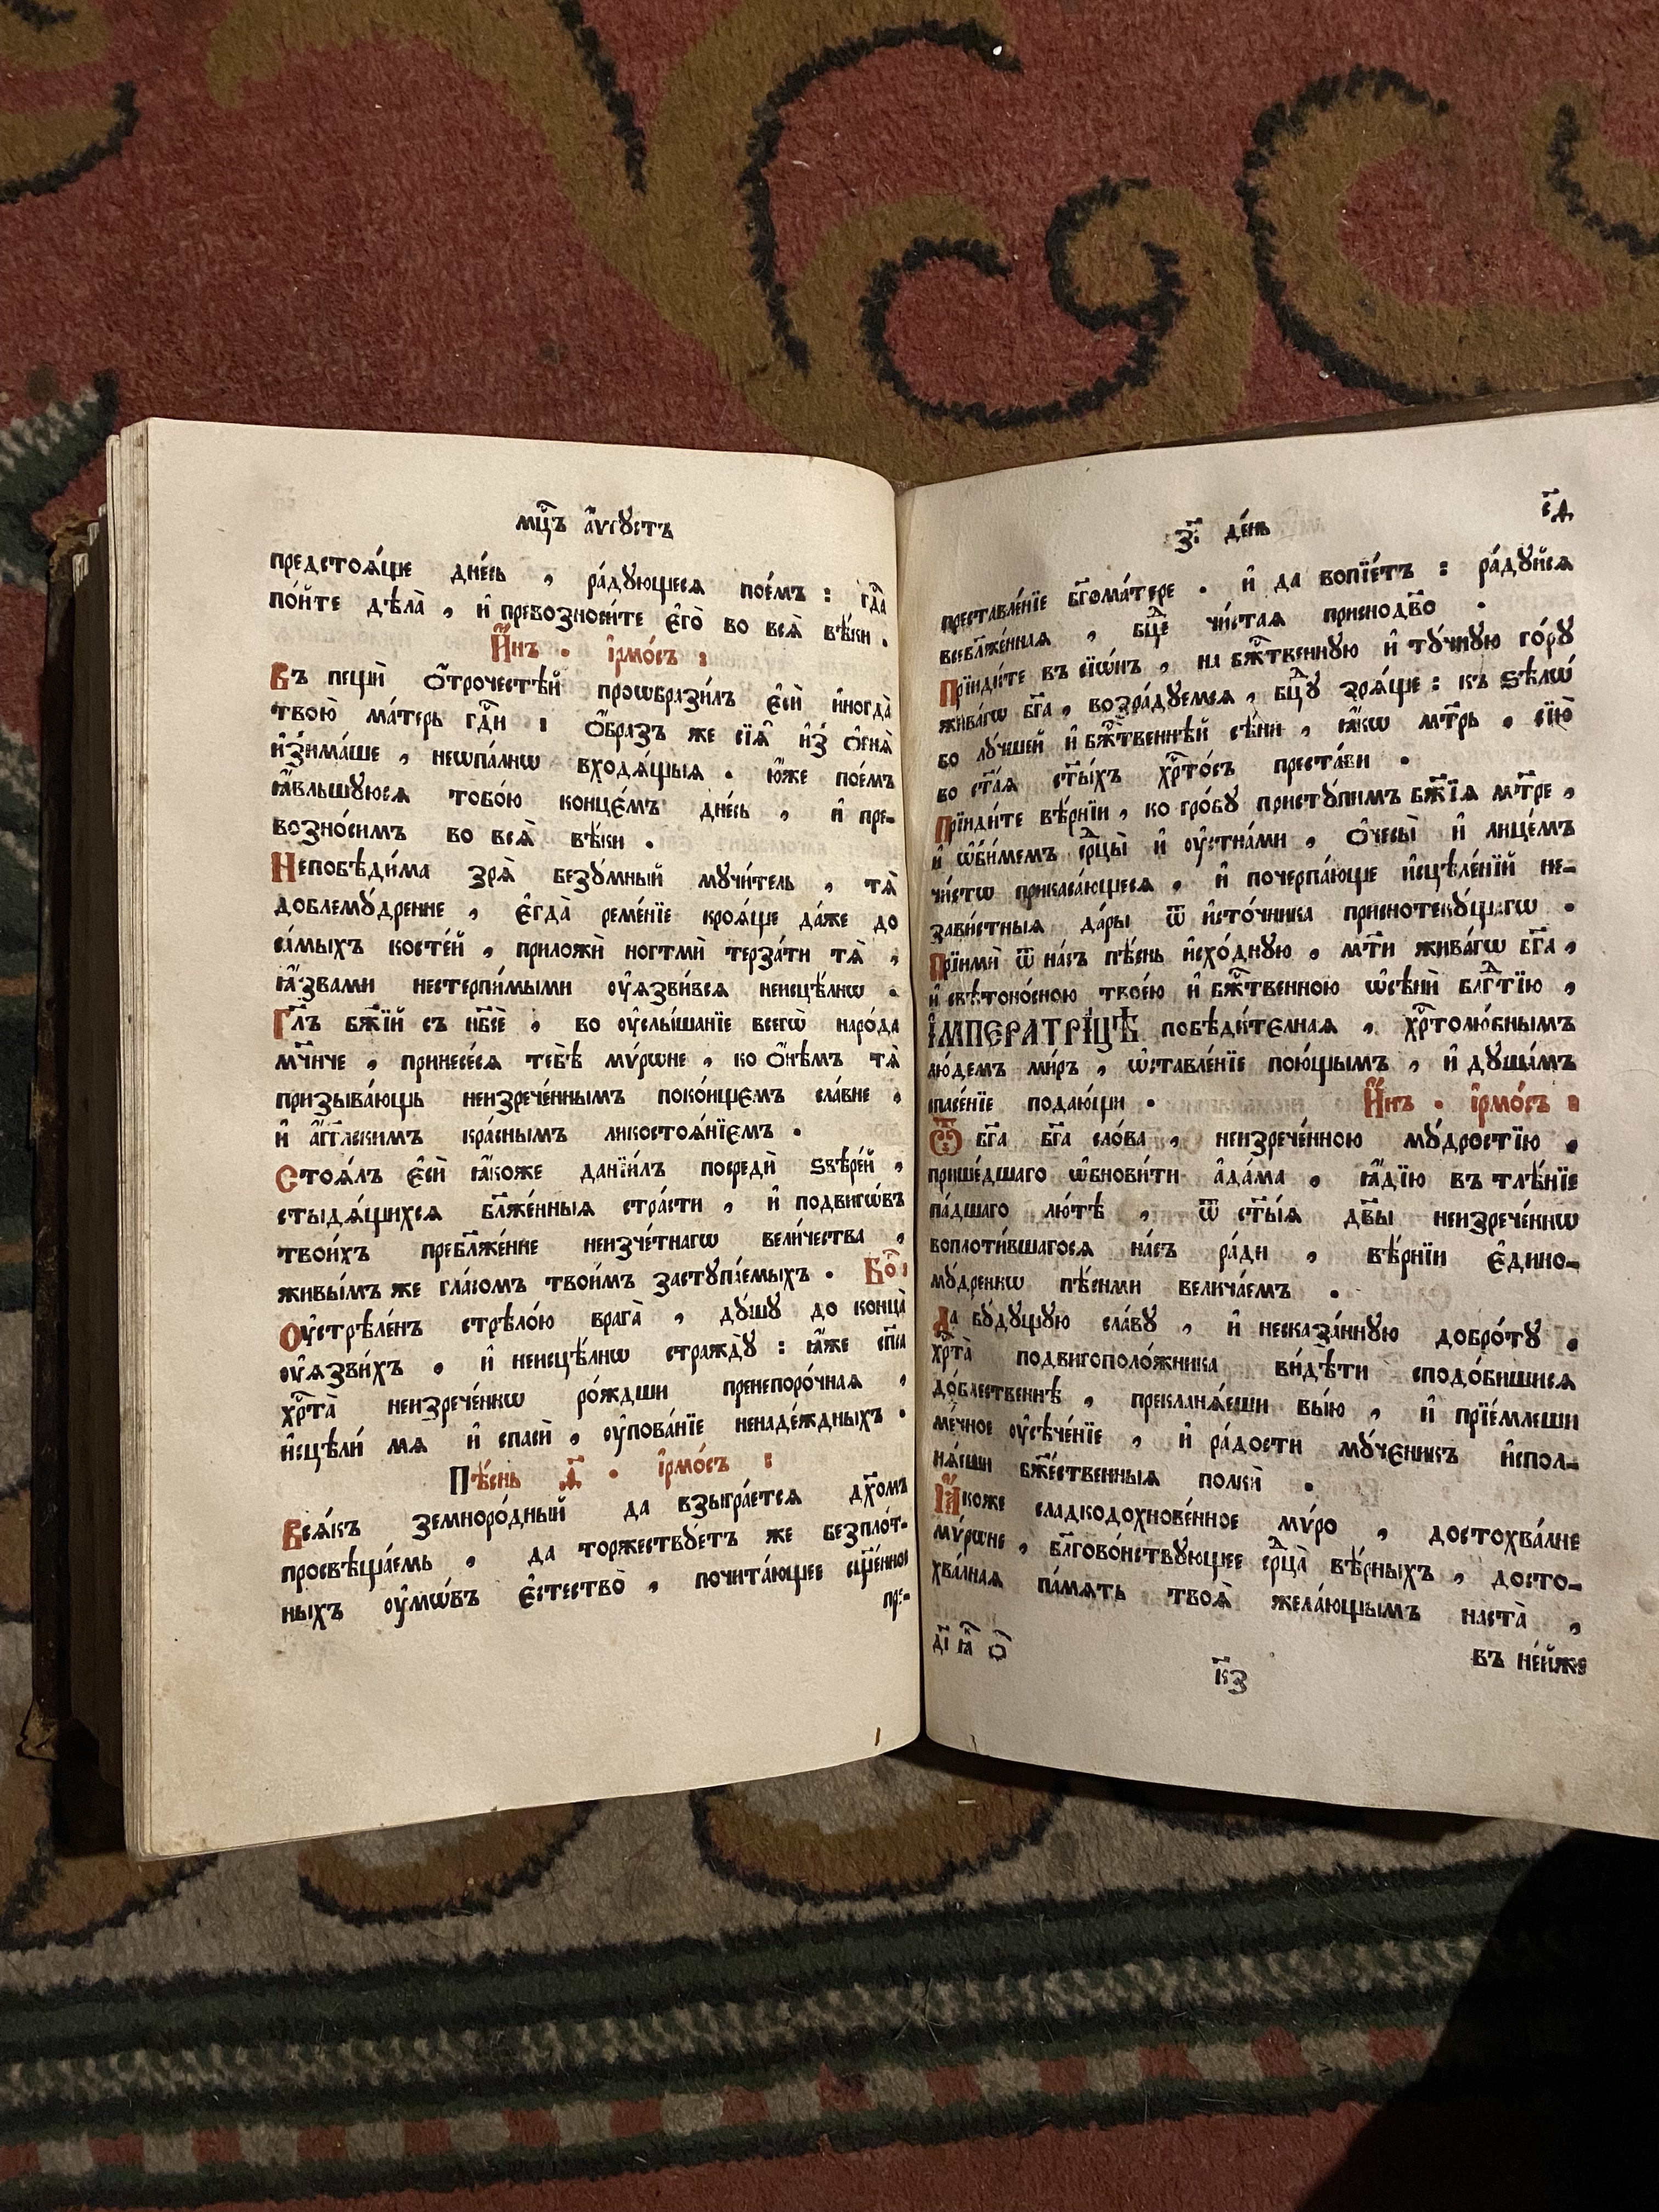 мц҃ъ а҆́ѵгꙋстъ
предстоѧ́ще дне́сь , ра́дꙋющесѧ пое́мъ : гд҇а
по́йте дѣла̀ , и҆ превозноси́те є҆го̀ во всѧ̀ вѣ́ки .
И҆́нъ . і҆рмо́съ :
Въ пещѝ ѻ҆трочестѣ́й проѡбрази́лъ є҆сѝ и҆ногда̀
твою̀ ма́терь гдⷭ҇и : ѻ҆́бразъ же сїѧ̑ и҆з̾ ѻ҆гнѧ̀
и҆зима́ше , неѡпа́лнѡ входѧ́щыѧ . ю҆́же пое́мъ
ꙗ҆́вльшꙋюсѧ тобо́ю конце́мъ дне́сь , и҆ пре-
возно́симъ во всѧ̀ вѣ́ки .
Непобѣди́ма зрѧ̀ безꙋ́мный мꙋчи́тель , тѧ̀
доблемꙋ́дренне , є҆гда̀ реме́нїе кроѧ́ще да́же до
са́мыхъ косте́й , приложѝ ногтмѝ терза́ти тѧ̀ ,
ꙗ҆́звами нестерпи́мыми оу҆ѧзви́всѧ неисцѣ́лнѡ .
Гл҃ъ бж҃їй съ нб҃сѐ , во оу҆слы́шанїе всегѡ̀ наро́да
мч҃нче , принесе́сѧ тебѣ̀ мѵ́рѡне , ко ѻ҆́нѣмъ тѧ̀
призыва́ющь неизрече́ннымъ поко́ищемъ сла́вне ,
и҆ а҆́гг҃лскимъ кра́снымъ ликостоѧ́нїемъ .
Стоѧ́лъ є҆сѝ ꙗ҆́коже данїи́лъ посредѝ ѕвѣре́й ,
стыдѧ́щихсѧ бл҃же́нныѧ стра́сти , и҆ по́двигѡвъ
твои́хъ пребл҃же́нне неизче́тнагѡ вели́чества ,
живы́мъ же гла́сомъ твои́мъ застꙋпа́емыхъ . Бо҇ :
Оу҆стрѣле́нъ стрѣло́ю врага̀ , дꙋ́шꙋ до конца̀
оу҆ѧзви́хъ , и҆ неисцѣ́лнѡ стра́ждꙋ : ꙗ҆́же сп҃са
хрⷭ҇та̀ неизрече́ннѡ ро́ждши пренепоро́чнаѧ ,
и҆сцѣлѝ мѧ и҆ спасѝ , оу҆пова́нїе ненаде́ждныхъ .
Пѣ́снь ѳ҃ . і҆рмо́съ :
Всѧ́къ земноро́дный да взыгра́етсѧ дх҃омъ
просвѣща́емь , да торжествꙋ́етъ же безпло́т-
ныхъ оу҆мѡ́въ є҆стество̀ , почита́ющее сщ҃е́нное
пре-
з҃і де́нь
є҃д
преставле́нїе бг҃ома́тере . и҆ да вопїе́тъ : ра́дꙋйсѧ
всебл҃же́ннаѧ , бцⷣе чи́стаѧ приснодв҃о .
Прїиди́те въ сїѡ́нъ , на бж҇твеннꙋю и҆ тꙋ́чнꙋю го́рꙋ
жива́гѡ бг҃а , возра́дꙋемсѧ , бцⷣꙋ зрѧ́ще : къ ѕѣлѡ̀
бо лꙋ́чшей и҆ бж҇твеннѣй сѣ́ни , ꙗ҆́кѡ мт҃рь , сїю̀
во ст҃аѧ ст҃ы́хъ хрⷭ҇то́съ преста́ви .
Прїиди́те вѣ́рнїи , ко гро́бꙋ пристꙋ́пимъ бж҃їѧ мт҃ре ,
и҆ ѡ҆б̾и́мемъ срⷣцы̀ и҆ оу҆стна́ми , ѻ҆чесы̀ и҆ лице́мъ
чи́стѡ прикаса́ющесѧ , и҆ почерпа́юще и҆сцѣле́нїй не-
зави́стныѧ да́ры ѿ и҆сто́чника приснотекꙋ́щагѡ .
Прїимѝ ѿ на́съ пѣ́снь и҆схо́днꙋю , мт҃и жива́гѡ бг҃а ,
и҆ свѣтоно́сною твое́ю и҆ бж҇твенною ѡ҆сѣнѝ блгⷣтїю ,
І҆МПЕРАТРІЦѢ побѣди́телнаѧ , хрⷭ҇толю́бнымъ
лю́демъ ми́ръ , ѡ҆ставле́нїе пою́щымъ , и҆ дꙋша́мъ
спасе́нїе подаю́щи . И҆́нъ . і҆рмо́съ :
Ѿ бг҃а бг҃а сло́ва , неизрече́нною мꙋ́дростїю ,
прише́дшаго ѡ҆бнови́ти а҆да́ма , ꙗ҆́дїю въ тлѣ́нїе
па́дшаго лю́тѣ , ѿ ст҃ы́ѧ дв҃ы неизрече́ннѡ
воплоти́вшагосѧ на́съ ра́ди , вѣ́рнїи є҆дино-
мꙋ́дреннѡ пѣ́сньми велича́емъ .
Да бꙋ́дꙋщꙋю сла́вꙋ , и҆ несказа́ннꙋю добро́тꙋ ,
хрⷭ҇та̀ подвигополо́жника ви́дѣти сподо́бишисѧ
до́блественнѣ , прекланѧ́еши вы́ю , и҆ прїе́млеши
ме́чное оу҆сѣче́нїе , и҆ ра́дости мꙋ́ченикъ и҆спол-
нѧ́еши бж҃е́ственныѧ полкѝ .
Ꙗ҆́коже сладкодохнове́нное мѵ́ро , достохва́лне
мѵ́рѡне , бл҃гово́нствꙋющее срⷣца̀ вѣ́рныхъ , досто-
хва́лнаѧ па́мѧть твоѧ̀ жела́ющымъ наста̀ ,
ді҃ ꙗ҃ ѻ҃
к҃з
въ не́йже